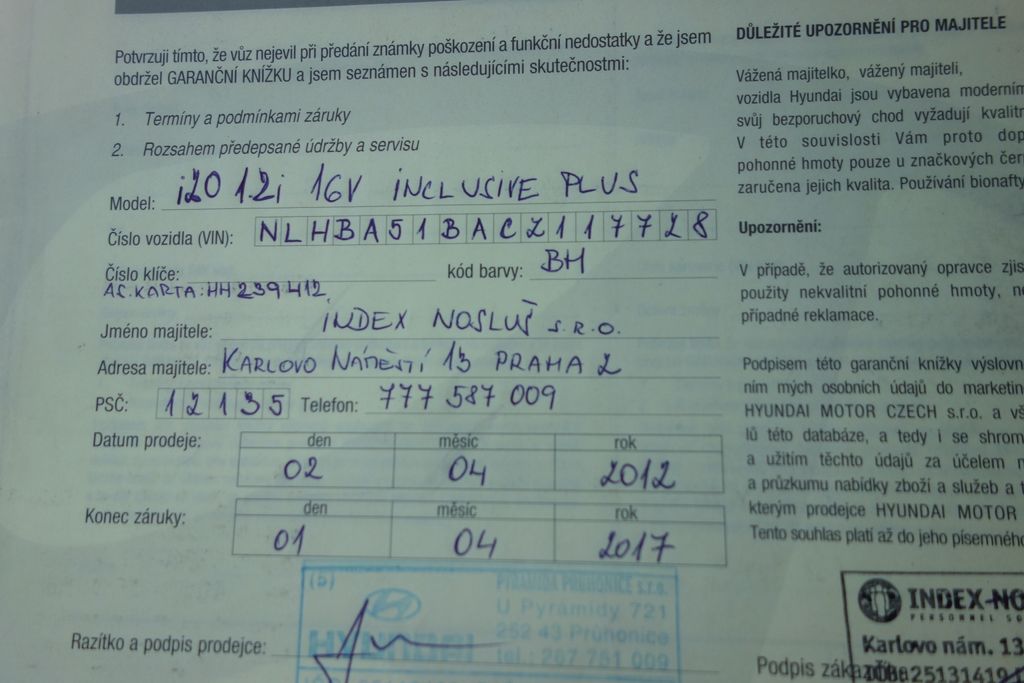 Potvrzuji tímto, že vůz nejevil při předání známky poškození a funkční nedostatky a že jsem
obdržel GARANČNÍ KNÍŽKU a jsem seznámen s následujícími skutečnostmi:
1. Termíny a podmínkami záruky
2. Rozsahem předepsané údržby a servisu
Model: i20 1.2i 16V INCLUSIVE PLUS
Číslo vozidla (VIN): NLHBA51BACZ117728
Číslo klíče: kód barvy: BH
AC.KARTA: HH 239412
Jméno majitele: INDEX NOSLUŠ S.R.O.
Adresa majitele: KARLOVO NÁMĚSTÍ 13 PRAHA 2
PSČ: 12135 Telefon: 777 587 009
Datum prodeje: den měsíc rok
02 04 2012
Konec záruky: den měsíc rok
01 04 2017
Razítko a podpis prodejce:
(5)
HYUNDAI
PYRAMIDA PRŮHONICE s.r.o.
U Pyramidy 721
252 43 Průhonice
tel.: 267 751 009
DŮLEŽITÉ UPOZORNĚNÍ PRO MAJITELE
Vážená majitelko, vážený majiteli,
vozidla Hyundai jsou vybavena moderním
svůj bezporuchový chod vyžadují kvalitn
V této souvislosti Vám proto dop
pohonné hmoty pouze u značkových čer
zaručena jejich kvalita. Používání bionafty
Upozornění:
V případě, že autorizovaný opravce zjis
použity nekvalitní pohonné hmoty, ne
případné reklamace.
Podpisem této garanční knížky výslovn
ním mých osobních údajů do marketin
HYUNDAI MOTOR CZECH s.r.o. a vš
lů této databáze, a tedy i se shrom
a užitím těchto údajů za účelem n
a průzkumu nabídky zboží a služeb a t
kterým prodejce HYUNDAI MOTOR
Tento souhlas platí až do jeho písemného
INDEX-NO
PERSONNEL SO
Karlovo nám. 13
Podpis záka
25131419